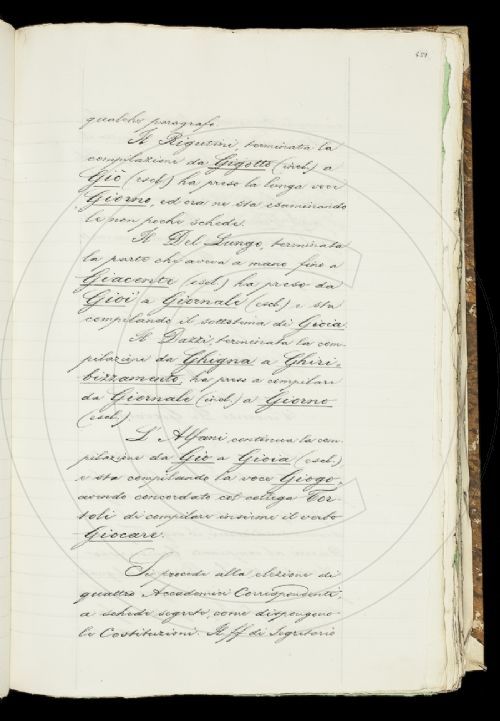 651
qualche paragrafo.
Il Rigutini, terminata la
compilazione da Gigotto (incl.) a
Giò (escl.) ha preso la lunga voce
Giorno, ed ora ne sta esaminando
le non poche schede.
Il Del Lungo, terminata
la parte che aveva a mano fino a
Giacente (escl.) ha preso da
Gioi a Giornale (escl.) e sta
compilando il sottotema di Gioia.
Il Dazzi, terminata la com-
pilazione da Ghigna a Ghiri-
bizzamento, ha preso a compilare
da Giornale (incl.) a Giorno
(escl.).
L'Alfani continua la com-
pilazione da Gio a Gioia (escl.)
e sta compilando la voce Giogo,
avendo concordato col collega Tor-
toli di compilare insieme il verbo
Giocare.
Si procede alla elezione di
quattro Accademici Corrispondenti,
a schede segrete, come dispongono
le Costituzioni. Il ff di Segretario